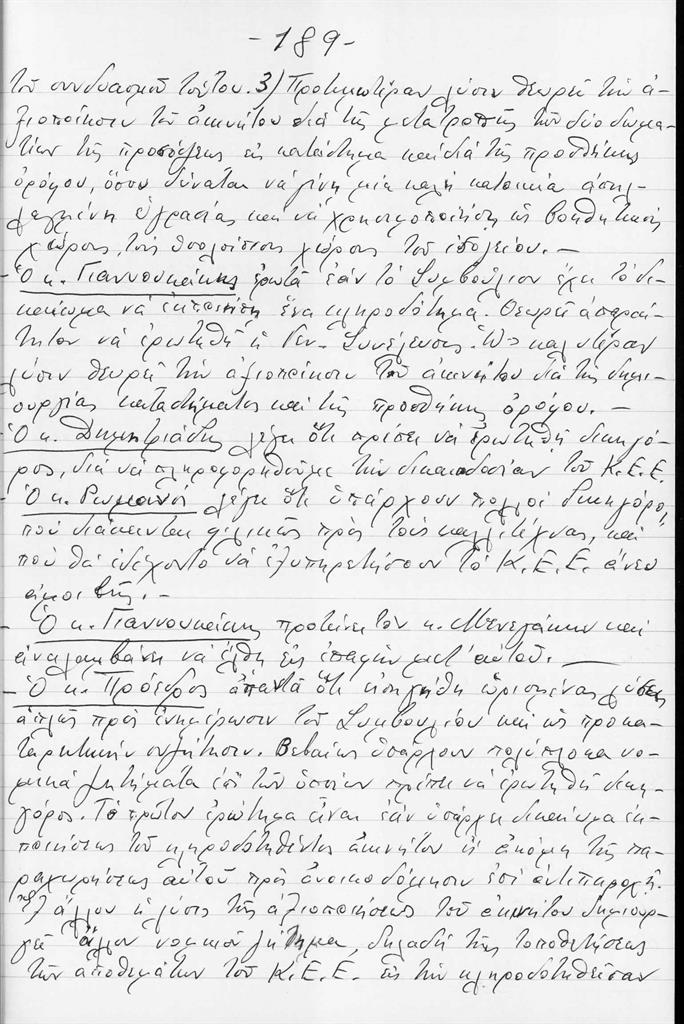 -189-
τοῦ συνδυασμοῦ τούτου. 3) Προτιμωτέραν λύσιν θεωρεῖ τὴν ἀ-
ξιοποίησιν τοῦ ἀκινήτου διὰ τῆς μετατροπῆς τῶν δύο δωμα-
τίων τῆς προσόψεως εἰς κατάστημα καὶ διὰ τῆς προσθήκης
ὀρόφου, ὅπου δύναται νὰ γίνῃ μία καλὴ κατοικία ἀπηλ-
λαγμένη ὑγρασίας καὶ νὰ χρησιμοποιήσῃ ὡς βοηθητικοὺς
χώρους, τοὺς ὑπολοίπους χώρους τοῦ ἰσογείου. —
- Ὁ κ. Γιαννουκάκης ἐρωτᾶ ἐὰν τὸ Συμβούλιον ἔχει τὸ δι-
καίωμα νὰ ἐκποιήσῃ ἕνα κληροδότημα. Θεωρεῖ ἀπαραί-
τητον νὰ ἐρωτηθῇ ἡ Γεν. Συνέλευσις. Ὡς καλυτέραν
λύσιν θεωρεῖ τὴν ἀξιοποίησιν τοῦ ἀκινήτου διὰ τῆς δημι-
ουργίας καταστήματος καὶ τῆς προσθήκης ὀρόφου. —
- Ὁ κ. Δημητριάδης λέγει ὅτι πρέπει νὰ ἐρωτηθῇ δικηγό-
ρος, διὰ νὰ πληροφορηθοῦμε τὴν δικαιοδοσίαν τοῦ Κ.Ε.Ε.
- Ὁ κ. Ρωμανός λέγει ὅτι ὑπάρχουν πολλοὶ δικηγόροι,
ποὺ διάκεινται φιλικῶς πρὸς τοὺς καλλιτέχνας, καὶ
ποὺ θὰ ἐδέχοντο νὰ ἐξυπηρετήσουν τὸ Κ.Ε.Ε. ἄνευ
ἀμοιβῆς. —
- Ὁ κ. Γιαννουκάκης προτείνει τὸν κ. Μενεγάκην καὶ
ἀναλαμβάνει νὰ ἔλθῃ εἰς ἐπαφὴν μετ' αὐτοῦ. —
- Ὁ κ. Πρόεδρος ἀπαντᾶ ὅτι εἰσηγήθη ὡρισμένας λύσεις
ἁπλῶς πρὸς ἐνημέρωσιν τοῦ Συμβουλίου καὶ ὡς προκα-
ταρκτικὴν συζήτησιν. Βεβαίως ὑπάρχουν πολύπλοκα νο-
μικὰ ζητήματα ἐπὶ τῶν ὁποίων πρέπει νὰ ἐρωτηθῇ δικη-
γόρος. Τὸ πρῶτον ἐρώτημα εἶναι ἐὰν ὑπάρχει δικαίωμα ἐκ-
ποιήσεως τοῦ κληροδοτηθέντος ἀκινήτου ἢ ἀκόμη τῆς πα-
ραχωρήσεως αὐτοῦ πρὸς ἀνοικοδόμησιν ἐπὶ ἀντιπαροχῇ.
ἄλλου ἡ λύσις τῆς ἀξιοποιήσεως τοῦ ἀκινήτου δημιουρ-
γεῖ ἄλλον νομικὸν ζήτημα, δηλαδὴ τῆς τοποθετήσεως
τῶν ἀποθεμάτων τοῦ Κ.Ε.Ε. εἰς τὴν κληροδοτηθεῖσαν